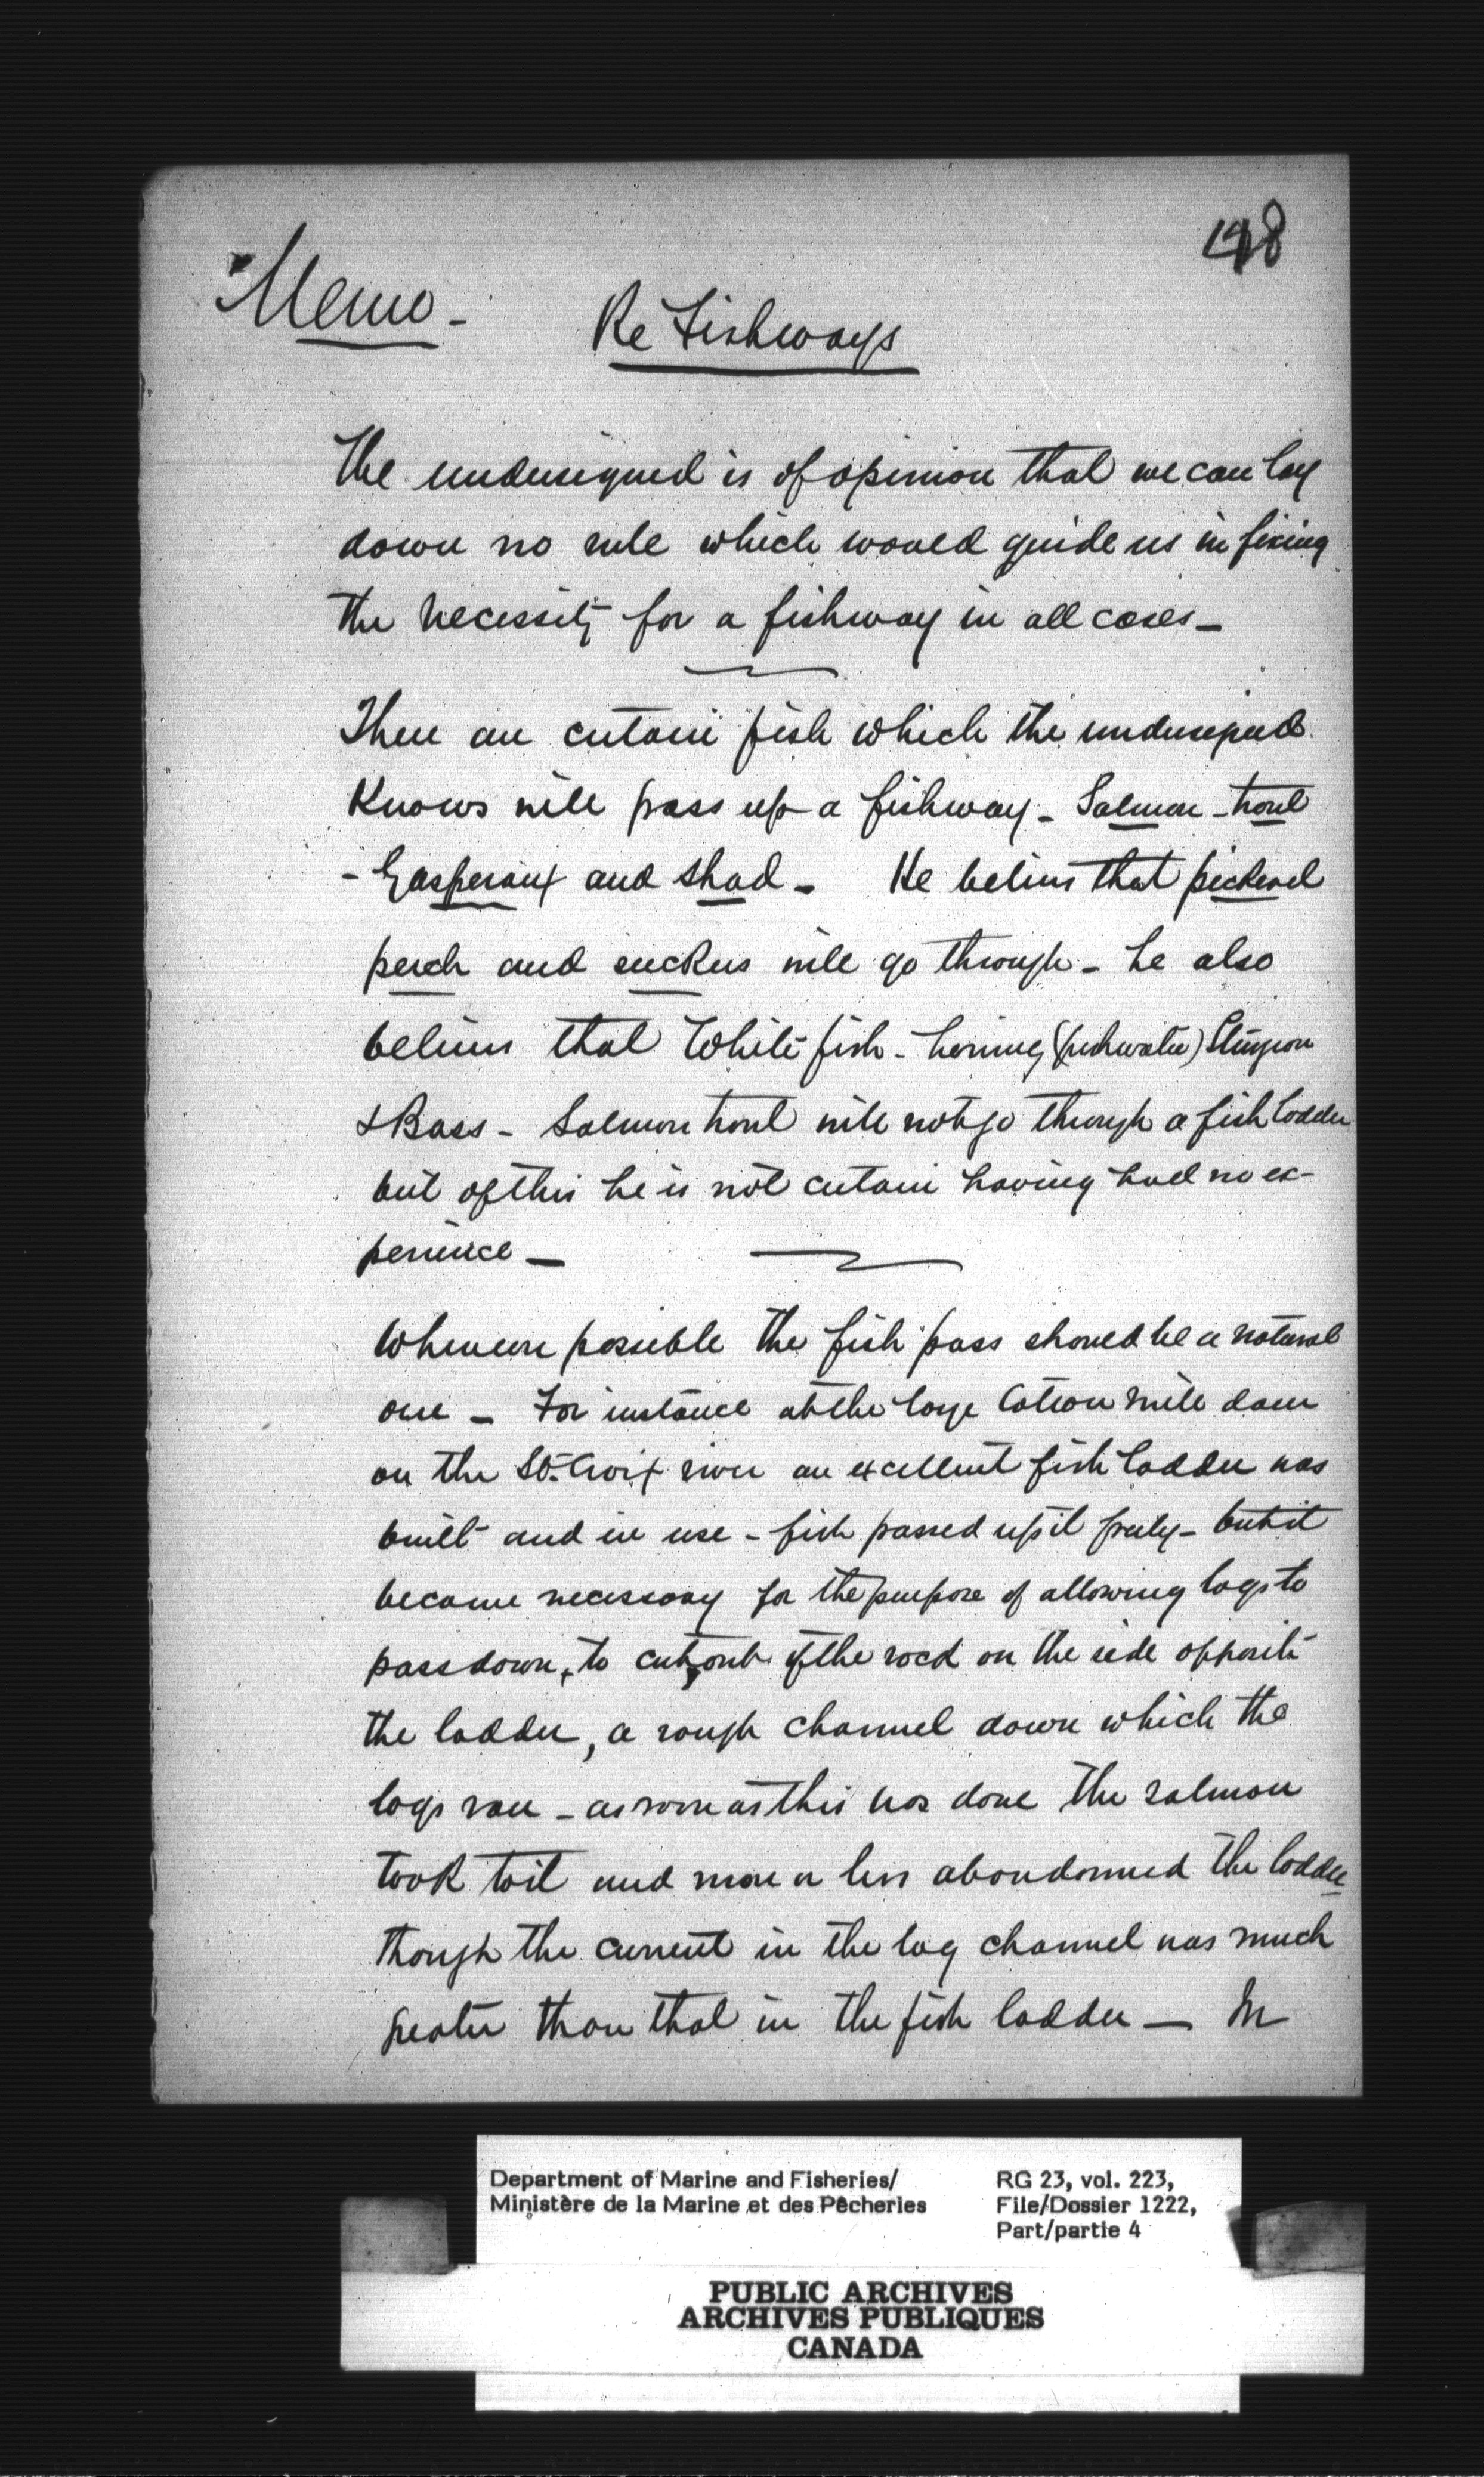 148
Memo -
Re Fishways
The undersigned is of opinion that we can lay
down no rule which would guide us in fixing
the necessity for a fishway in all cases -
There are certain fish which the undersigned
Knows will pass up a fishway - Salmon - trout
- Gasperaux and shad - He believes that pickerel
perch and suckers will go through - he also
believes that White fish - herring (freshwater) Sturgeon
& Bass - Salmon trout will not go through a fish ladder
but of this he is not certain having had no ex-
perience -
Whenever possible the fish pass should be a natural
one - For instance at the large Cotton mill dam
on the St. Croix river an excellent fish ladder was
built and in use - fish passed up it freely - but it
became necessary for the purpose of allowing logs to
pass down, to cut, out of the rock on the side opposite
the ladder, a rough channel down which the
logs ran - as soon as this was done the salmon
took to it and more or less abandonned the ladder
though the current in the log channel was much
greater than that in the fish ladder - In
Department of Marine and Fisheries/
Ministère de la Marine et des Pêcheries
RG 23, vol. 223,
File/Dossier 1222,
Part/partie 4
PUBLIC ARCHIVES
ARCHIVES PUBLIQUES
CANADA